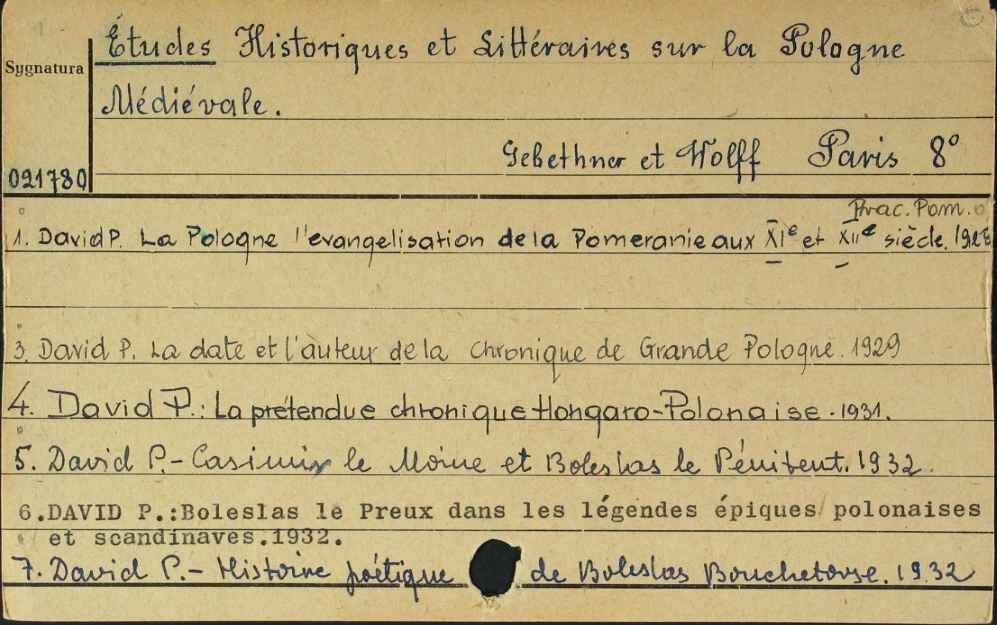 Études Historiques et Littéraires sur la Pologne
Sygnatura
Médiévale.
Gebethner et Wolff Paris 8°
021780
Prac. Pom.
1. David P. La Pologne l'evangelisation de la Pomeranie aux XIe et XIIe siècle.
3. David P. La date et l'auteur de la Chronique de Grande Pologne. 1929
4. David P.: La prétendue chronique Hongaro-Polonaise. 1931.
5. David P. - Casimir le Moine et Boleslas le Pénitent. 1932.
6.DAVID P.:Boleslas le Preux dans les légendes épiques polonaises
et scandinaves.1932.
7. David P. - Histoire poétique de Boleslas Bouchetorse. 1932